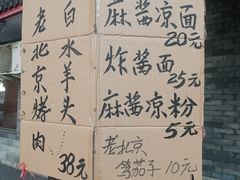 老北京烤肉
白水羊头
38元
麻酱凉面
20元
炸酱面
25元
麻酱凉粉
5元
老北京
茄子10元